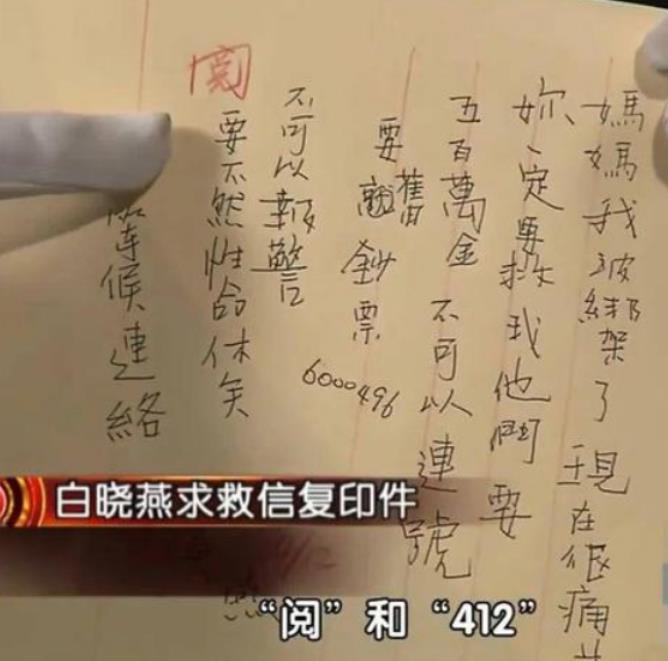 媽媽我被綁架了現在很痛
妳一定要救我他們要
五百萬金 不可以連號
要舊鈔票
6000496
不可以報警
要不然性命休矣
閱
等候連絡
白晓燕求救信复印件
“阅”和“412”